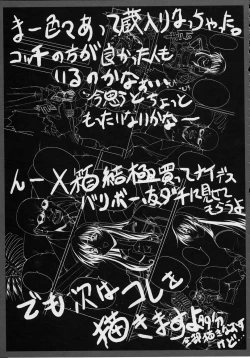 まー色々あって蔵入りなっちゃった。
コッチの方が良かった人も
いるのかなぁ…
う思うとちょっと
もったいないかなー
んー X箱結極買ってナイデス
バリボー 友ダチに見せて
もらうよ
でも次はコレを
描きますよ